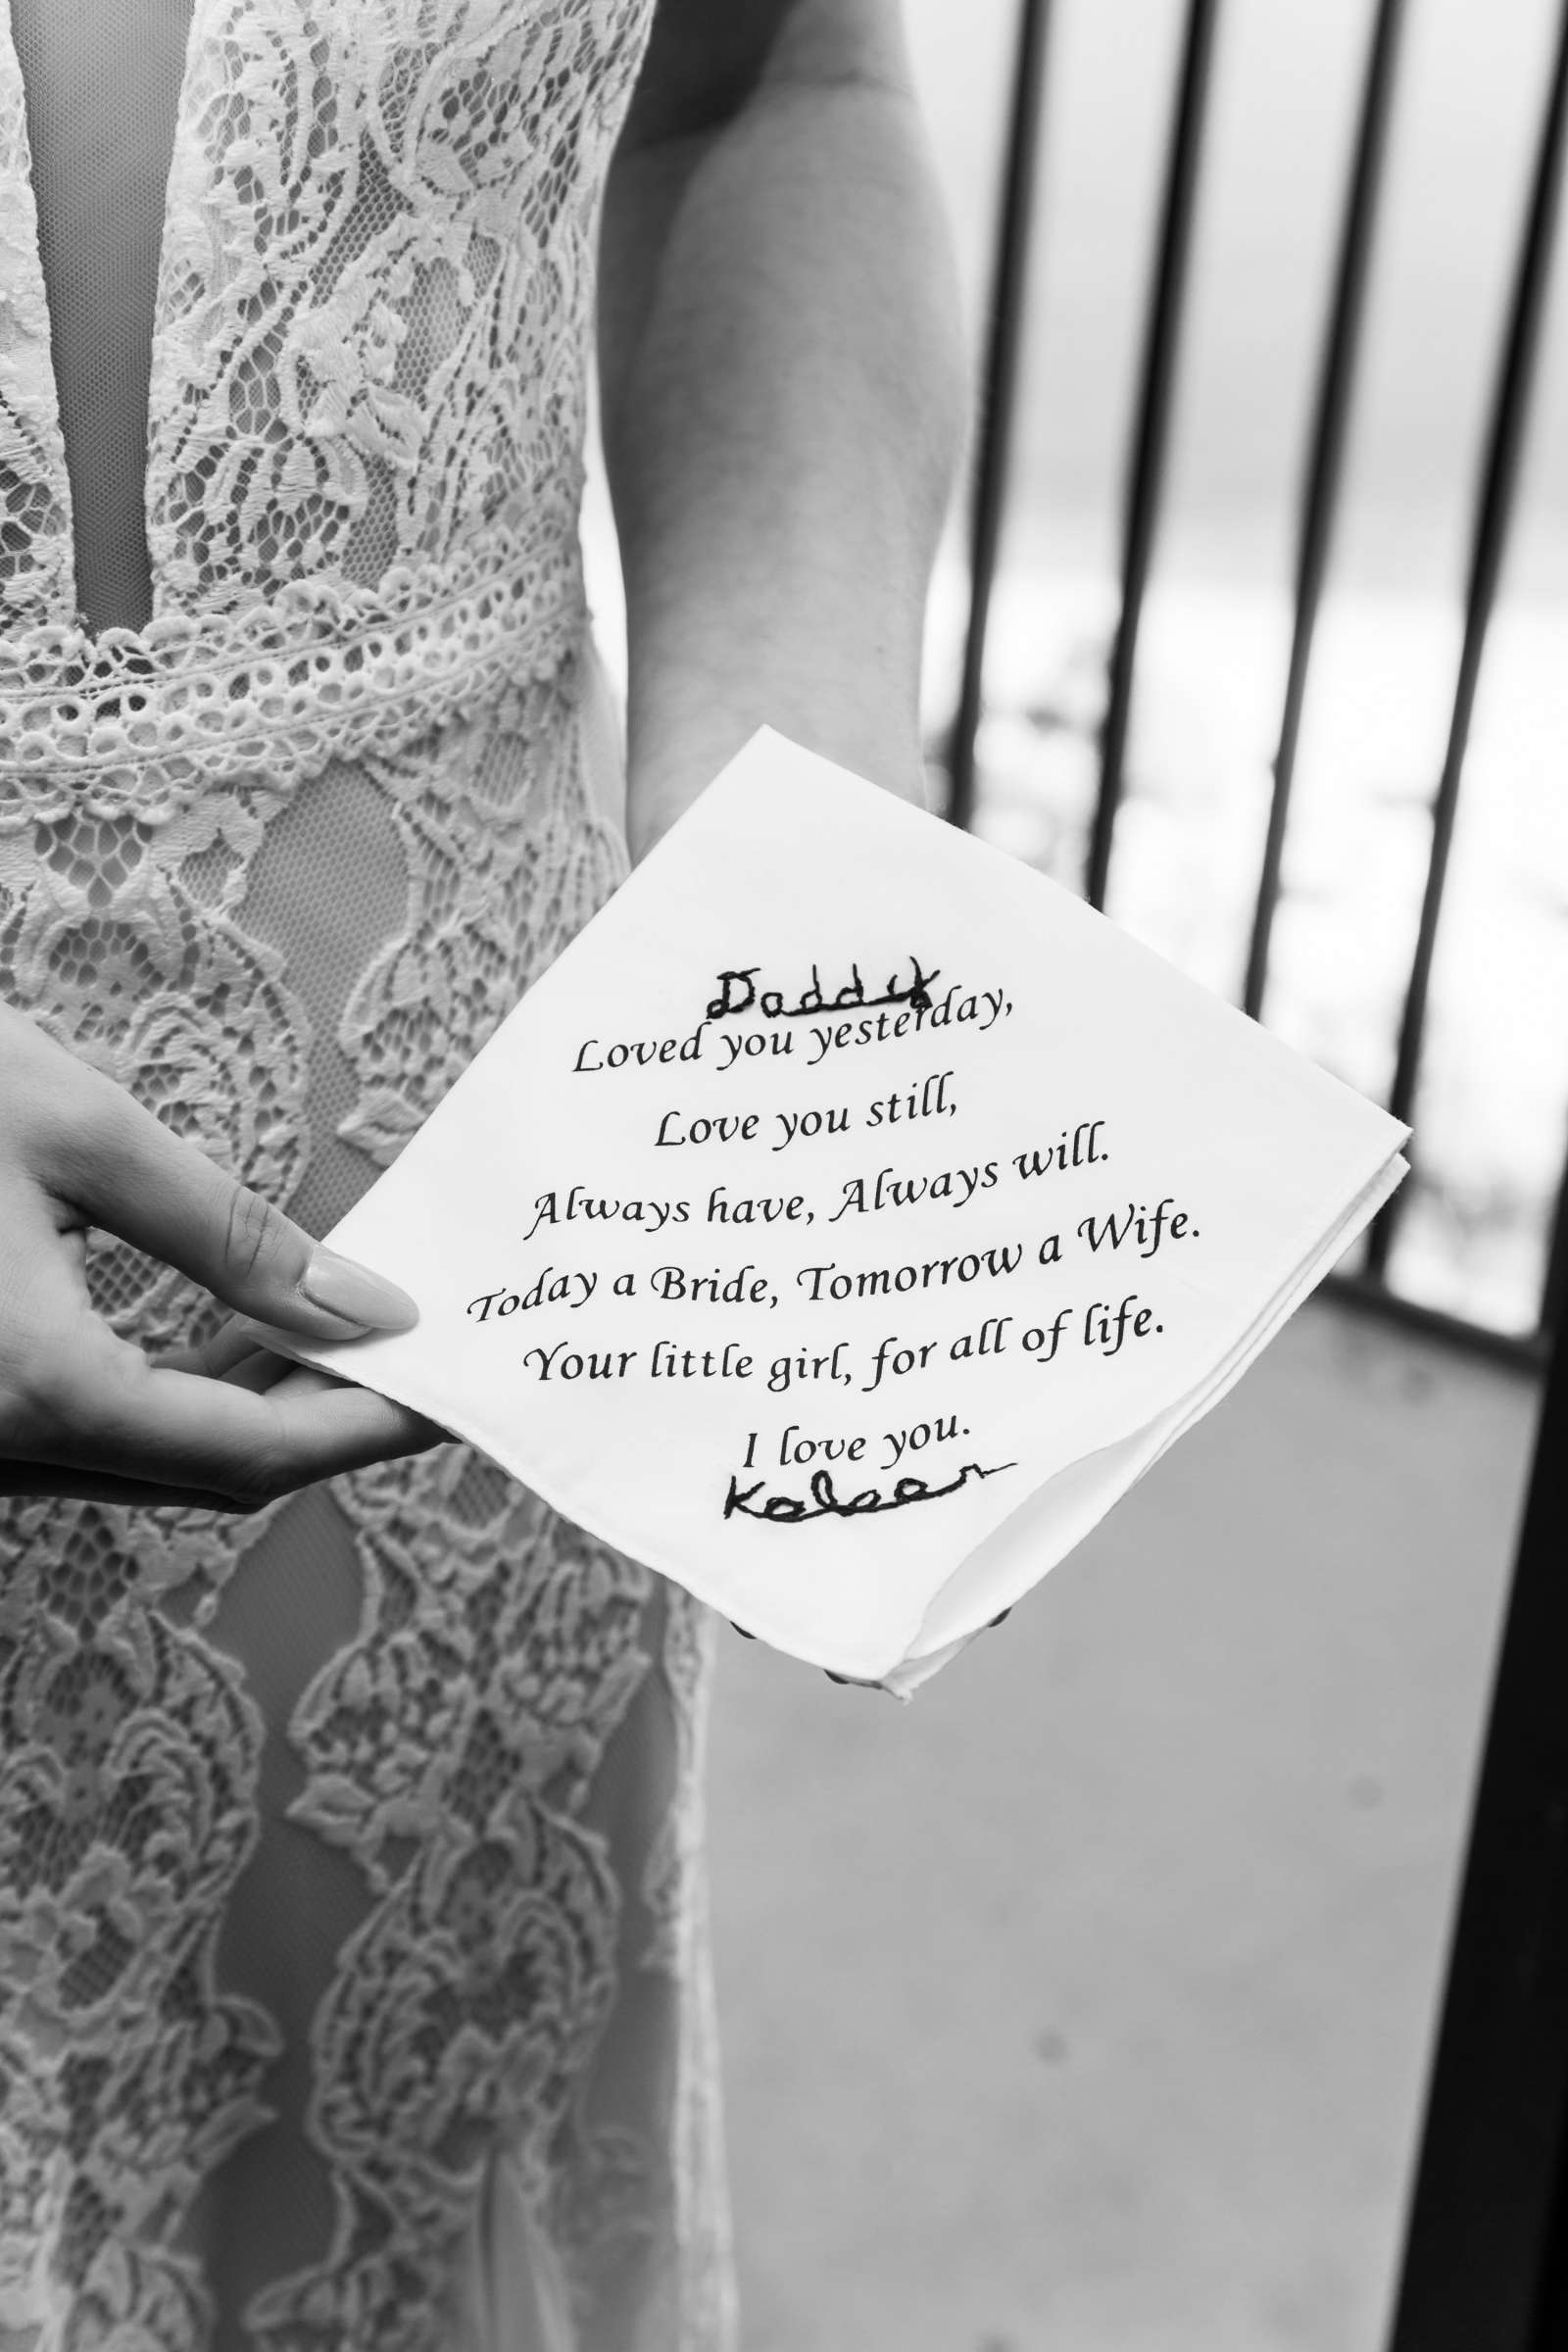 Daddy
Loved you yesterday,
Love you still,
Always have, Always will.
Today a Bride, Tomorrow a Wife.
Your little girl, for all of life.
I love you.